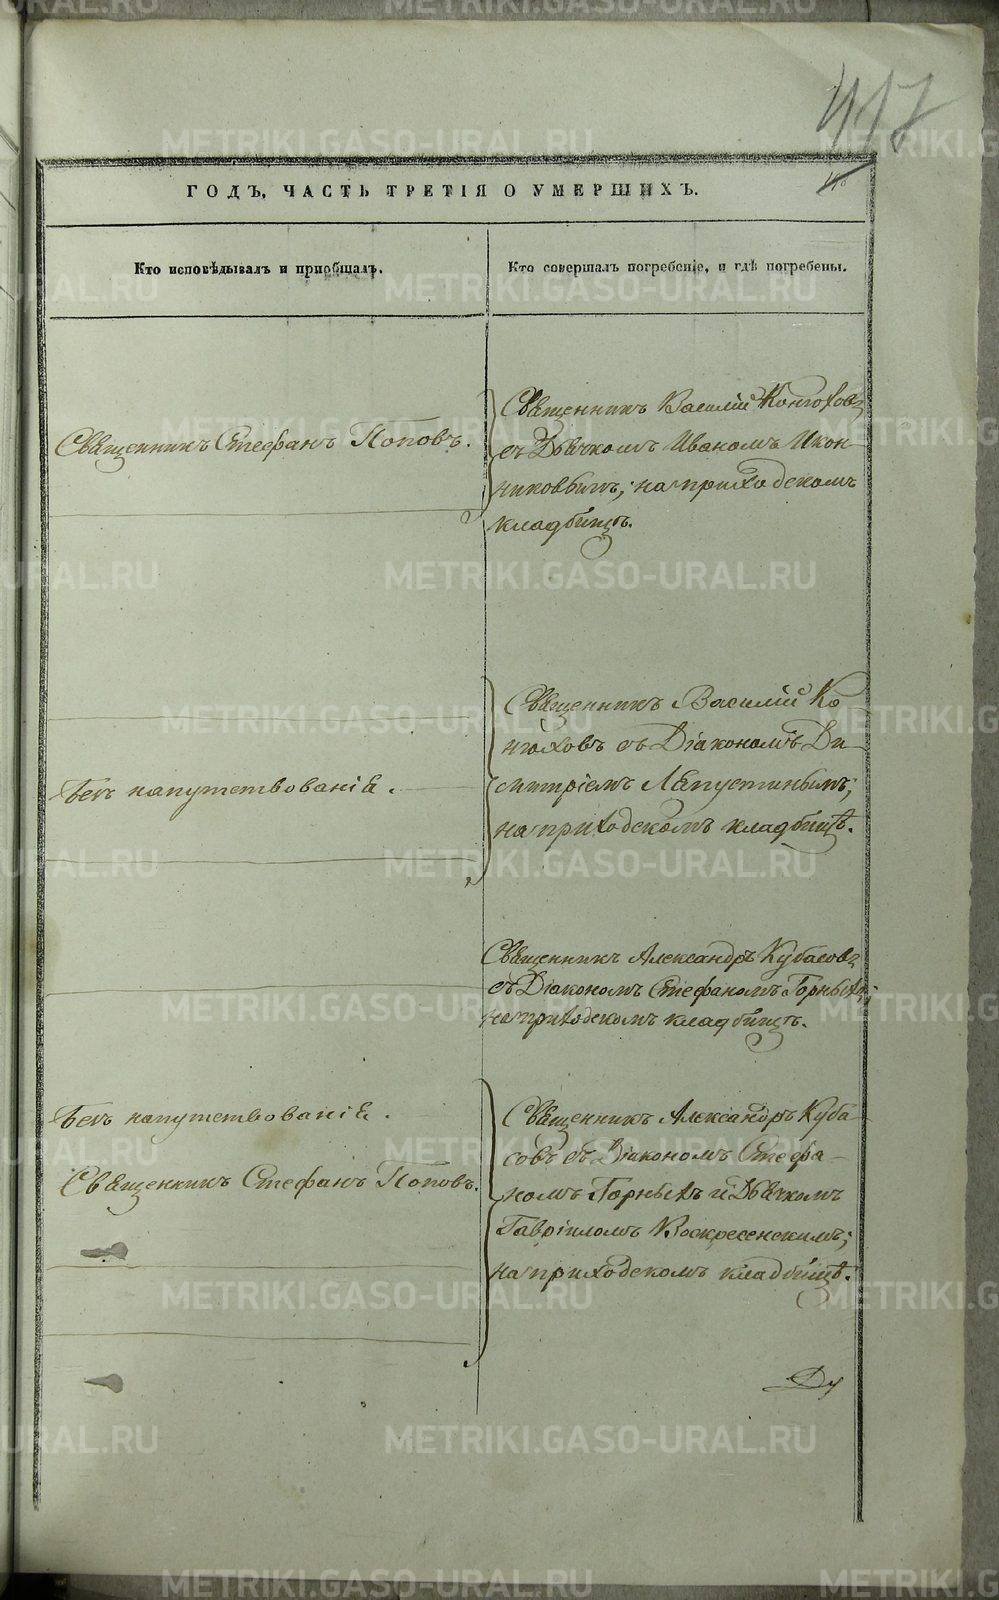 417
ГОДЪ, ЧАСТЬ ТРЕТІЯ О УМЕРШИХЪ.
Кто исповѣдывалъ и приобщалъ.
Кто совершалъ погребеніе, и гдѣ погребены.
Священникъ Стефанъ Поповъ.
Священникъ Василій Конюховъ
съ Дьячкомъ Иваномъ Икон-
никовымъ; на приходскомъ
кладбищѣ.
Безъ напутствованія.
Священникъ Василій Ко-
нюховъ съ Діакономъ Ди-
митріемъ Лапустинымъ;
на приходскомъ кладбищѣ.
Священникъ Александръ Кубасовъ
съ Діакономъ Стефаномъ Горныхъ;
на приходскомъ кладбищѣ.
Безъ напутствованія.
Священникъ Стефанъ Поповъ.
Священникъ Александръ Куба-
совъ съ Діакономъ Стефа-
номъ Горныхъ и Дьячкомъ
Гавріиломъ Воскресенскимъ;
на приходскомъ кладбищѣ.
METRIKI.GASO-URAL.RU